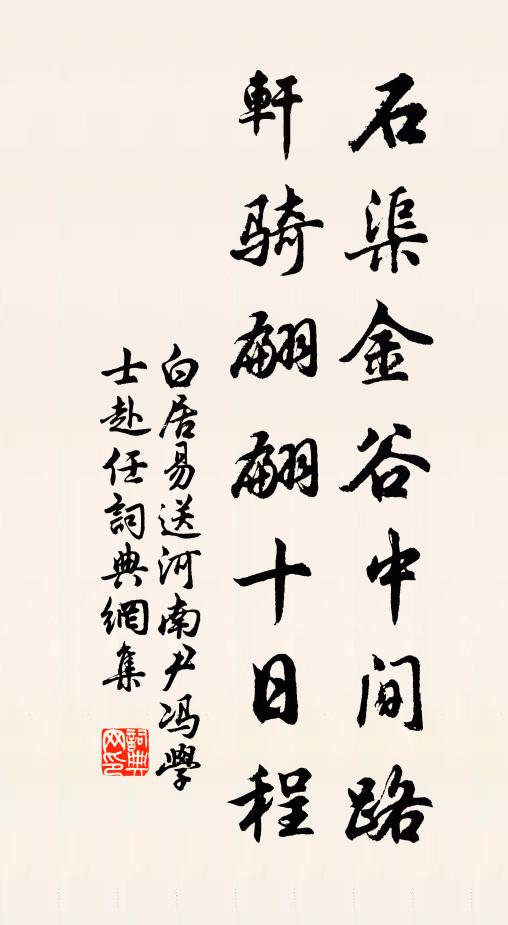 石渠金谷中间路
軒骑翩翩十日程
白居易送河南尹冯學
士赴任詞典網集
詞典
网印